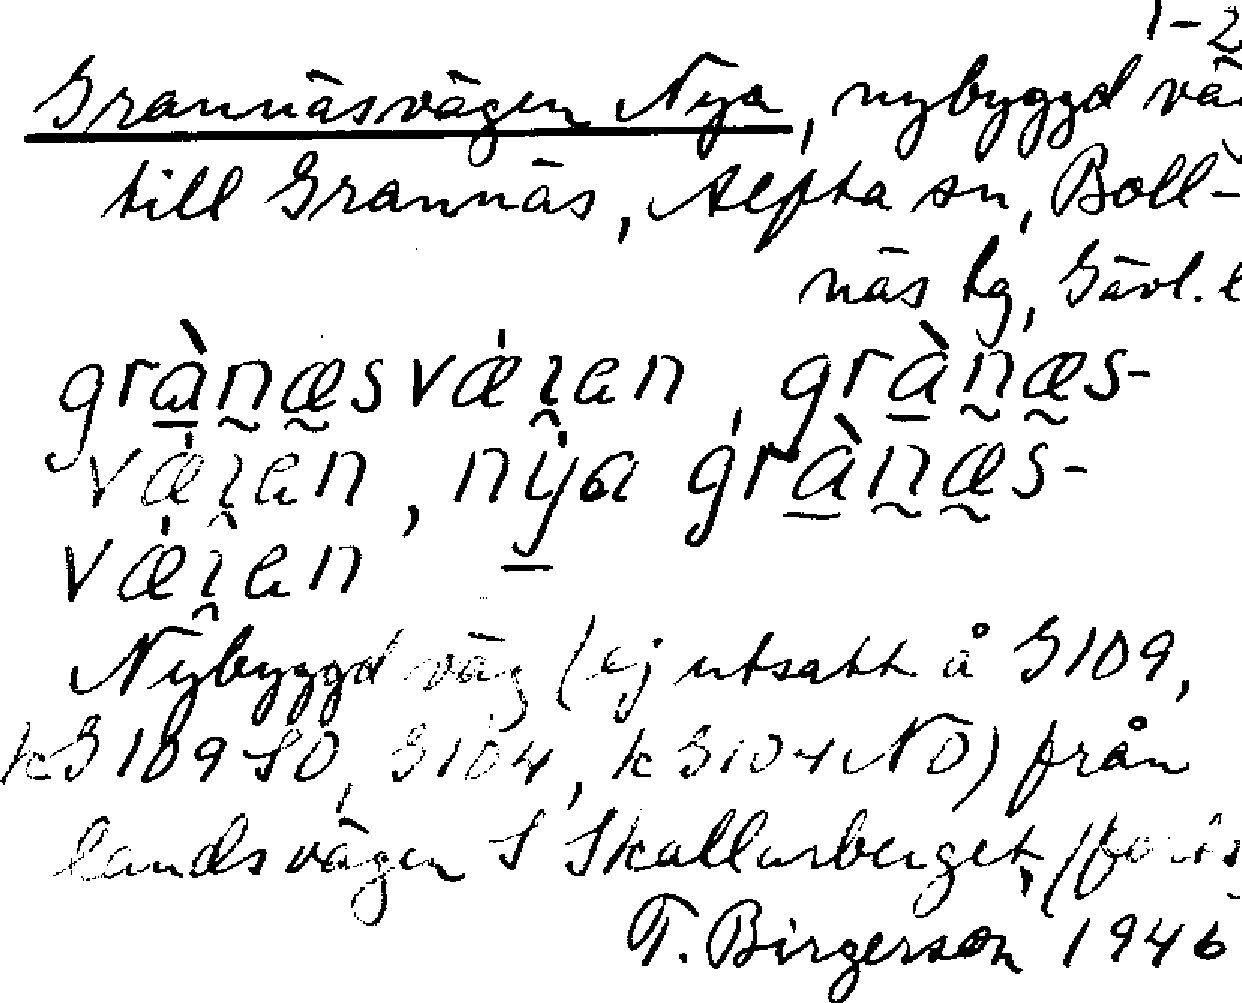 1-2
Grannäsvägen Nya, nybyggd vä
till Grannäs, Alfta sn, Boll-
näs tg, Gävl. l
gràn̰æ̰svǽɪ̯en, gràn̰æ̰s-
vǽɪ̯en, nýa gràn̰æ̰s-
vǽɪ̯en
Nybyggd väg (ej utsatt å G109,
kG109SO, G104, kG104NO) från
landsvägen S Skallarberget, (forts
T. Birgerson 1946